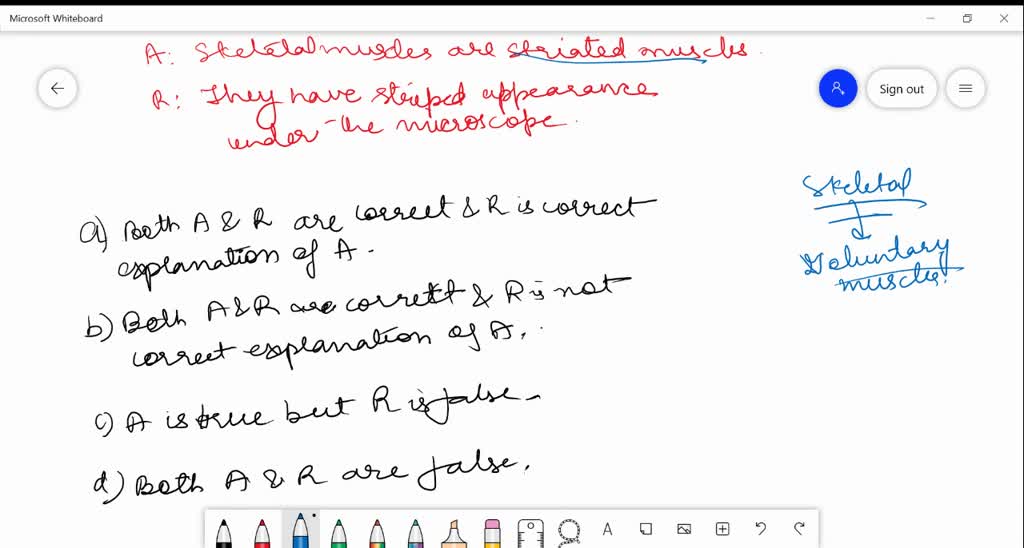 Microsoft Whiteboard
A: Skeletal muscles are striated muscles.
R: They have striped appearance
under the microscope.
Sign out
Skeletal
Voluntary
muscles.
a) Both A & R are correct & R is correct
explanation of A.
b) Both A & R are correct & R is not
correct explanation of A.
c) A is true but R is false.
d) Both A & R are false.
A